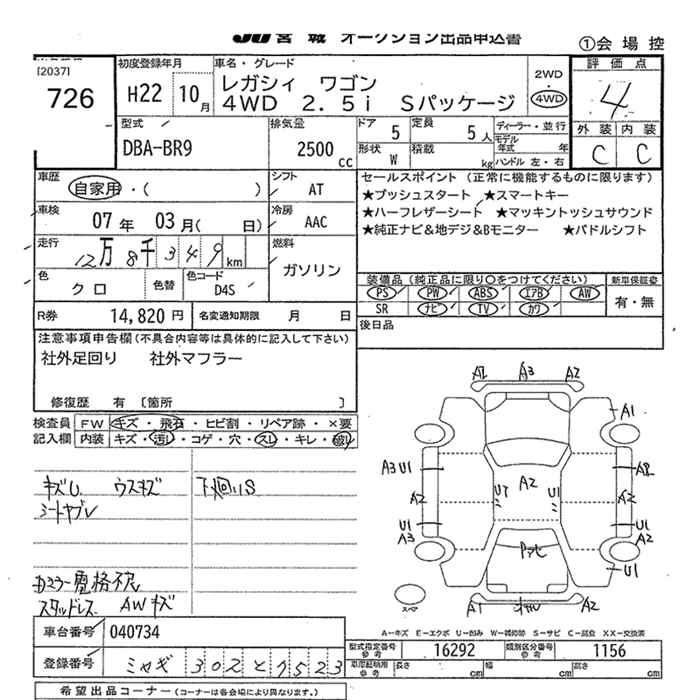 JU 宮城 オークション出品申込書
①会場控
[2037]
726
初度登録年月
H22 10月
車名・グレード
レガシィ ワゴン
4WD 2.5i Sパッケージ
2WD
・
4WD
評価点
4
外装 内装
C C
型式
DBA-BR9
排気量
2500 cc
ドア 5
形状 W
定員 5人
積載 kg
ディーラー・並行
モデル年式 年
ハンドル 左・右
車歴
自家用・( )
シフト
AT
車検
07年 03月( 日)
冷房
AAC
走行
12万8千349km
燃料
ガソリン
色
クロ
色替
色コード
D4S
R券 14,820円
名変通知期限 月 日
セールスポイント (正常に機能するものに限ります)
★プッシュスタート ★スマートキー
★ハーフレザーシート ★マッキントッシュサウンド
★純正ナビ&地デジ&Bモニター ★パドルシフト
装備品 (純正品に限り○をつけてください)
新車保証書
PS PW ABS エアB AW
SR ナビ TV カワ
有・無
後日品
注意事項申告欄 (不具合内容等は具体的に記入して下さい)
社外足回り 社外マフラー
修復歴 有 [箇所 ]
検査員記入欄
FW キズ・飛石・ヒビ割・リペア跡・×要
内装 キズ・汚れ・コゲ・穴・スレ・キレ・破れ
キズU ウスキズ 下廻りS
シートヤブレ
スタッドレス AWキズ
A2 A3 A2
A1
A3 U1
A2
A2
U1
A3
U7 A2 U1
A2
U1
A2
U1
A1 A2
スペア
A－キズ E－エクボ U－凹み W－補修跡 S－サビ C－腐食 XX－交換済
車台番号 040734
登録番号 ミヤギ 302 と 7523
型式指定番号参考 16292
類別区分番号参考 1156
車庫証明用参考 長さ cm 幅 cm 高さ cm
希望出品コーナー (コーナーは各会場により異なります。)